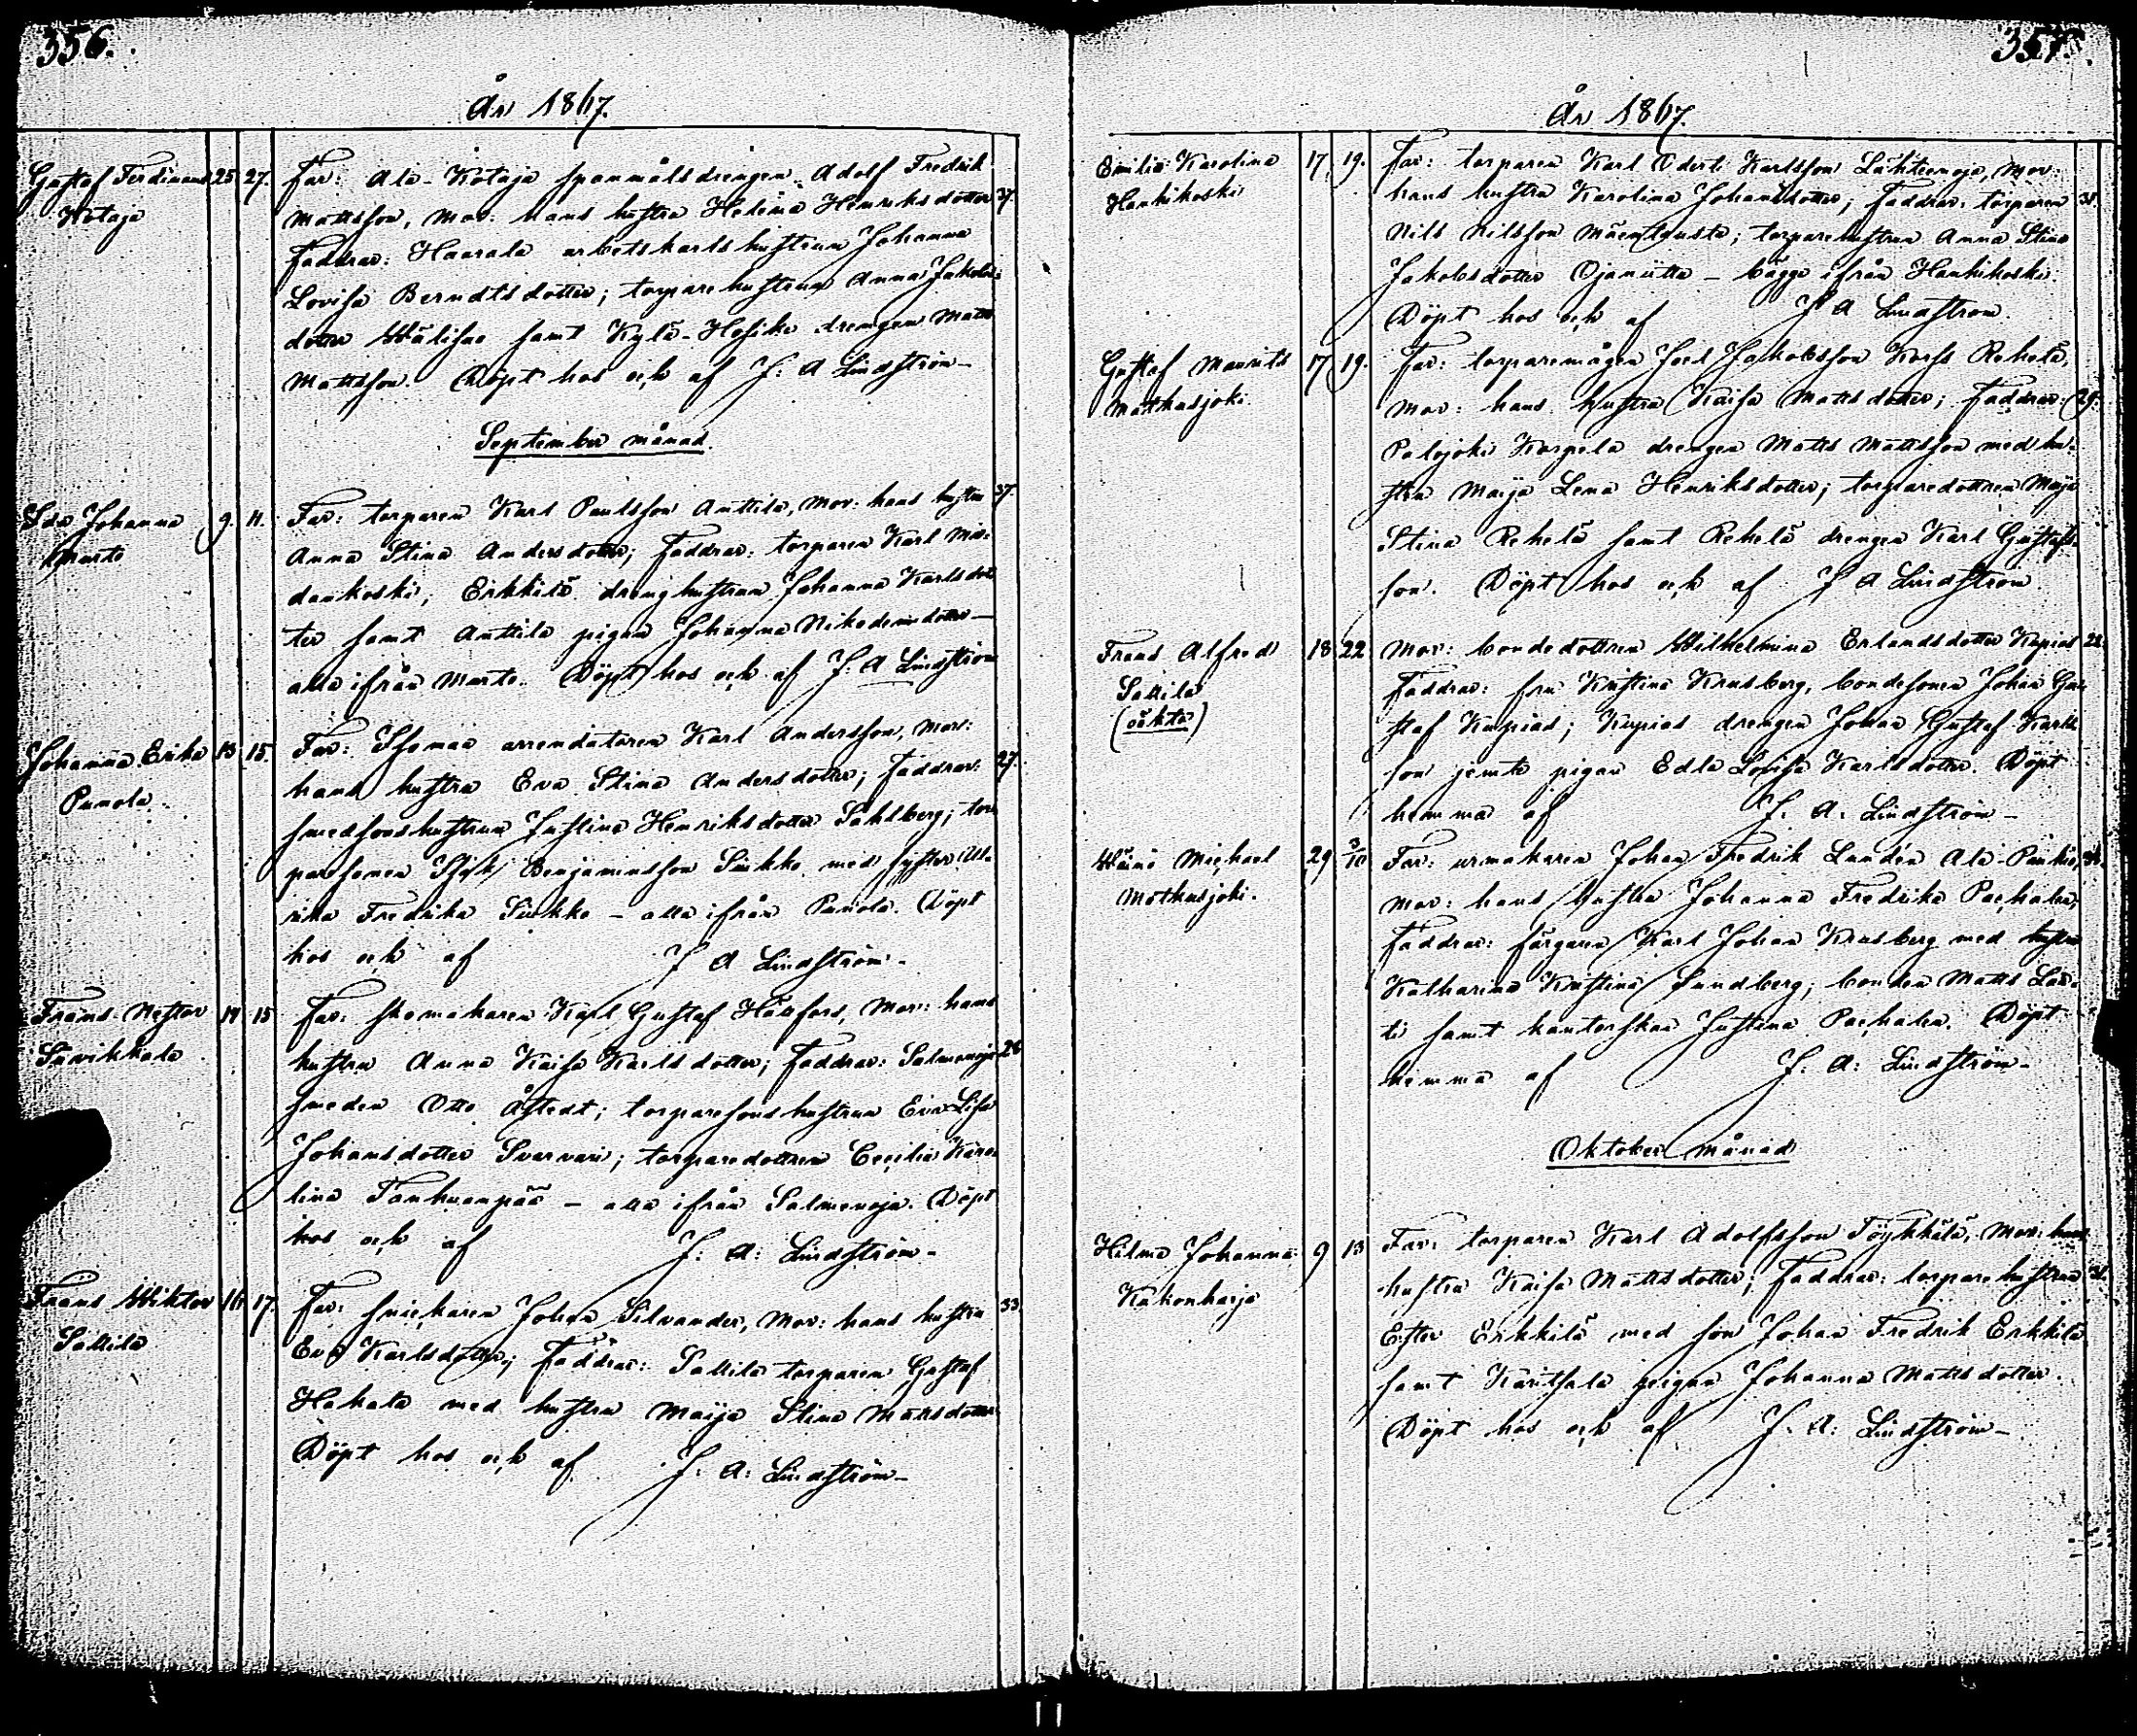 356.
År 1867.
Gustaf Ferdinand 25 27. Far: Ala-Kotaja spanmålsdrengen Adolf Fredrik
Kotaja Mattsson, Mor: hans hustru Helena Henriksdotter 37.
Faddrar: Haarala arbetskarlshustrun Johanna
Lovisa Berndtsdotter; torparehustrun Anna Jakobs-
dotter Wälisuo samt Kylä-Hossika drengen Matts
Mattsson. Döpt hos och af J: A Lindström-
September månad.
Ida Johanna 9. 11. Far: torparen Karl Paulsson Anttila, Mor: hans hustru 37.
Martti Anna Stina Andersdotter; Faddrar: torparen Karl
dankoski, Erkkilä drenghustrun Johanna Karlsdot
ter samt Anttila pigan Johanna Nikodemidotter-
alla ifrån Martti. Döpt hos och af J. A Lindström
Johanna Erika 13 15. Far: Isomaa arrendatoren Karl Andersson, Mor:
Panola. hans hustru Eva Stina Andersdotter; Faddrar: 27.
smedsonshustrun Justina Henriksdotter Sahlberg; tor
paresonen Isak Benjaminsson Sinkko med syster Ul-
rika Fredrika Sinkko - alla ifrån Panola. Döpt
hos och af J A Lindström-
Frans Nestor 14 15 Far: skomakaren Karl Gustaf Hänfors, Mor: hans
Suvikkala hustru Anna Kaisa Karlsdotter; Faddrar: Salmenoja 28
smeden Otto Åstedt; torparesonshustrun Eva Lisa
Johansdotter Svarvari; torparedottren Cecilia Karo
lina Tanhuanpää - alla ifrån Salmenoja. Döpt
hos och af J: A: Lindström-
Frans Wiktor 16 17. Far: snickaren Johan Silvander, Mor: hans hustru 33.
Sallila Eva Karlsdotter; Faddrar: Sallila torparen Gustaf
Hakala med hustru Maija Stina Mattsdotter
Döpt hos och af J: A: Lindström-
357.
År 1867.
Emilia Karolina 17 19. Far: torparen Karl Odert Karlsson Lähteenoja, Mor:
Hankikoski hans hustru Karolina Johansdotter; Faddrar: torparen 31.
Nils Nilsson Mäenlausta; torparehustrun Anna Stina
Jakobsdotter Ojaniitta - bägge ifrån Hankikoski.
Döpt hos och af J A Lindström.
Gustaf Maurits 17 19. Far: torparemågen Joel Jakobsson Korsi Rehelä,
Matkusjoki Mor: hans hustru Kaisa Mattsdotter; Faddrar: 29.
Palojoki Korpela drengen Matts Mattsson med hu-
stru Maija Lena Henriksdotter; torparedottren Maija
Stina Rehelä samt Rehelä drengen Karl Gustafs-
son. Döpt hos och af J A Lindström
Frans Alfred 18 22 Mor: bondedottren Wilhelmina Erlandsdotter Kopias 22.
Sallila Faddrar: fru Kristina Krusberg, bondesonen Johan Gu
(oäkta) staf Kupias; Kupias drengen Johan Gustaf Karls
son jemte pigan Edla Lovisa Karlsdotter. Döpt
hemma af J. A. Lindström-
Wäinö Michael 29 3/10 Far: urmakaren Johan Fredrik Lundén Ala-Paukio,
Mathusjoki. Mor: hans hustru Johanna Fredrika Pachalen,
Faddrar: färgaren Karl Johan Krusberg med hustru
Katharina Kristina Sundberg; bonden Matts Lau-
ti samt kantorskan Justina Pachalen. Döpt
hemma af J. A: Lindström-
Oktober månad
Hilma Johanna 9 13 Far: torparen Karl Adolfsson Töykkälä, Mor: hans
Kukonharja hustru Kaisa Mattsdotter; Faddrar: torparehustrun 31.
Ester Erkkilä med son Johan Fredrik Erkkilä
samt Karitsala pigan Johanna Mattsdotter.
Döpt hos och af J. A: Lindström-